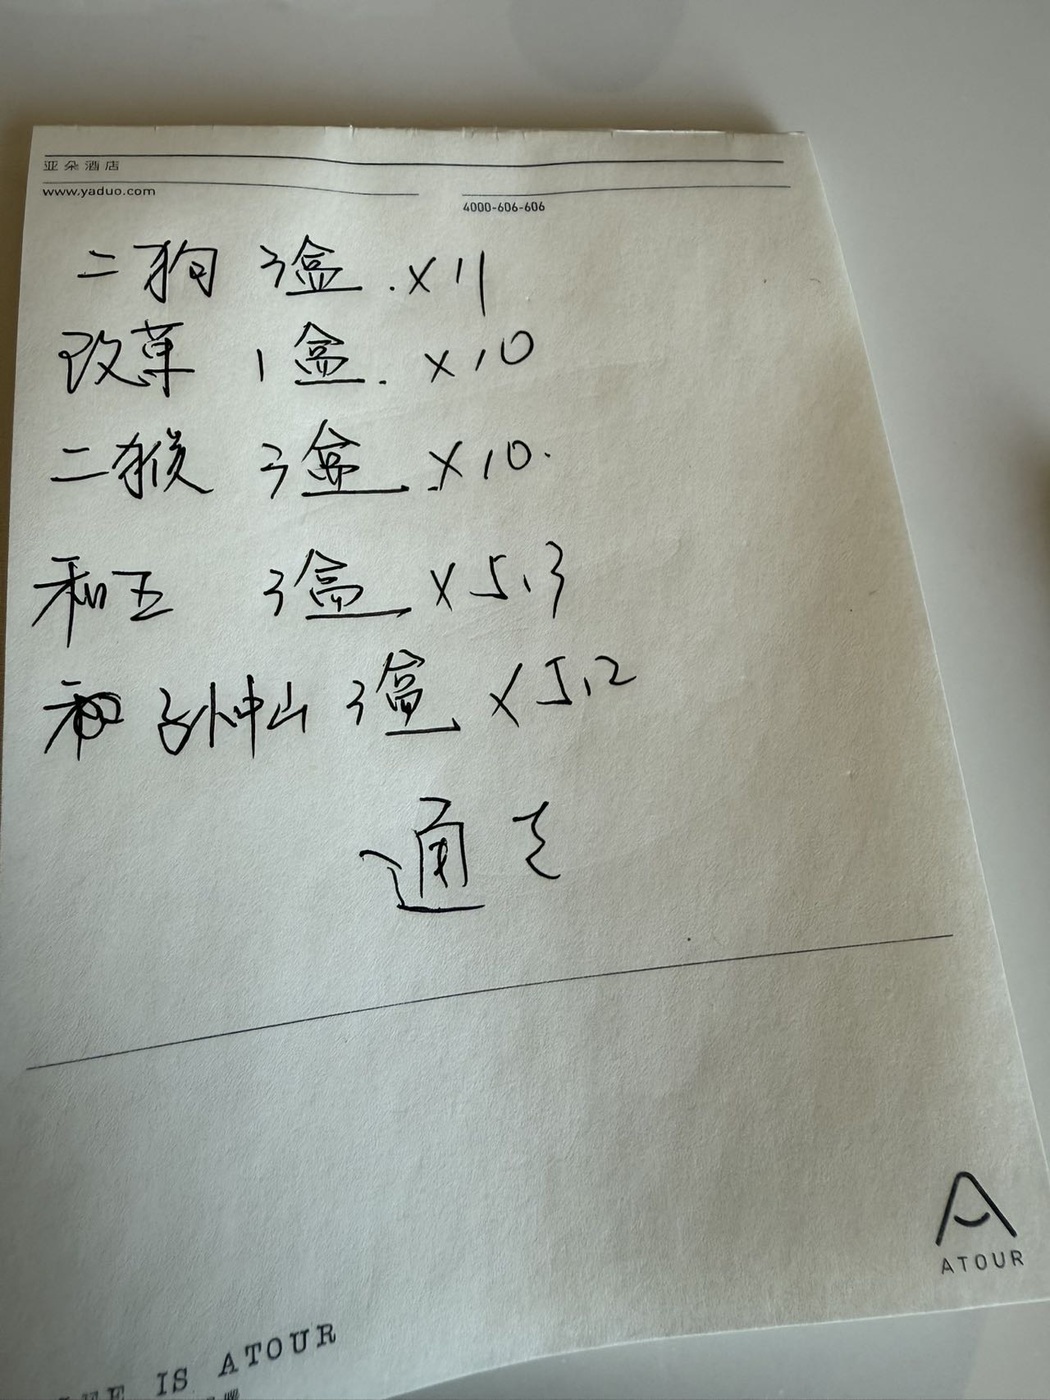 亚朵酒店
www.yaduo.com
4000-606-606
二狗 3盒.×11
改革 1盒.×10
二猴 3盒×10.
和五 3盒×5.3
孙中山 3盒×5.2
通
ATOUR
IS ATOUR